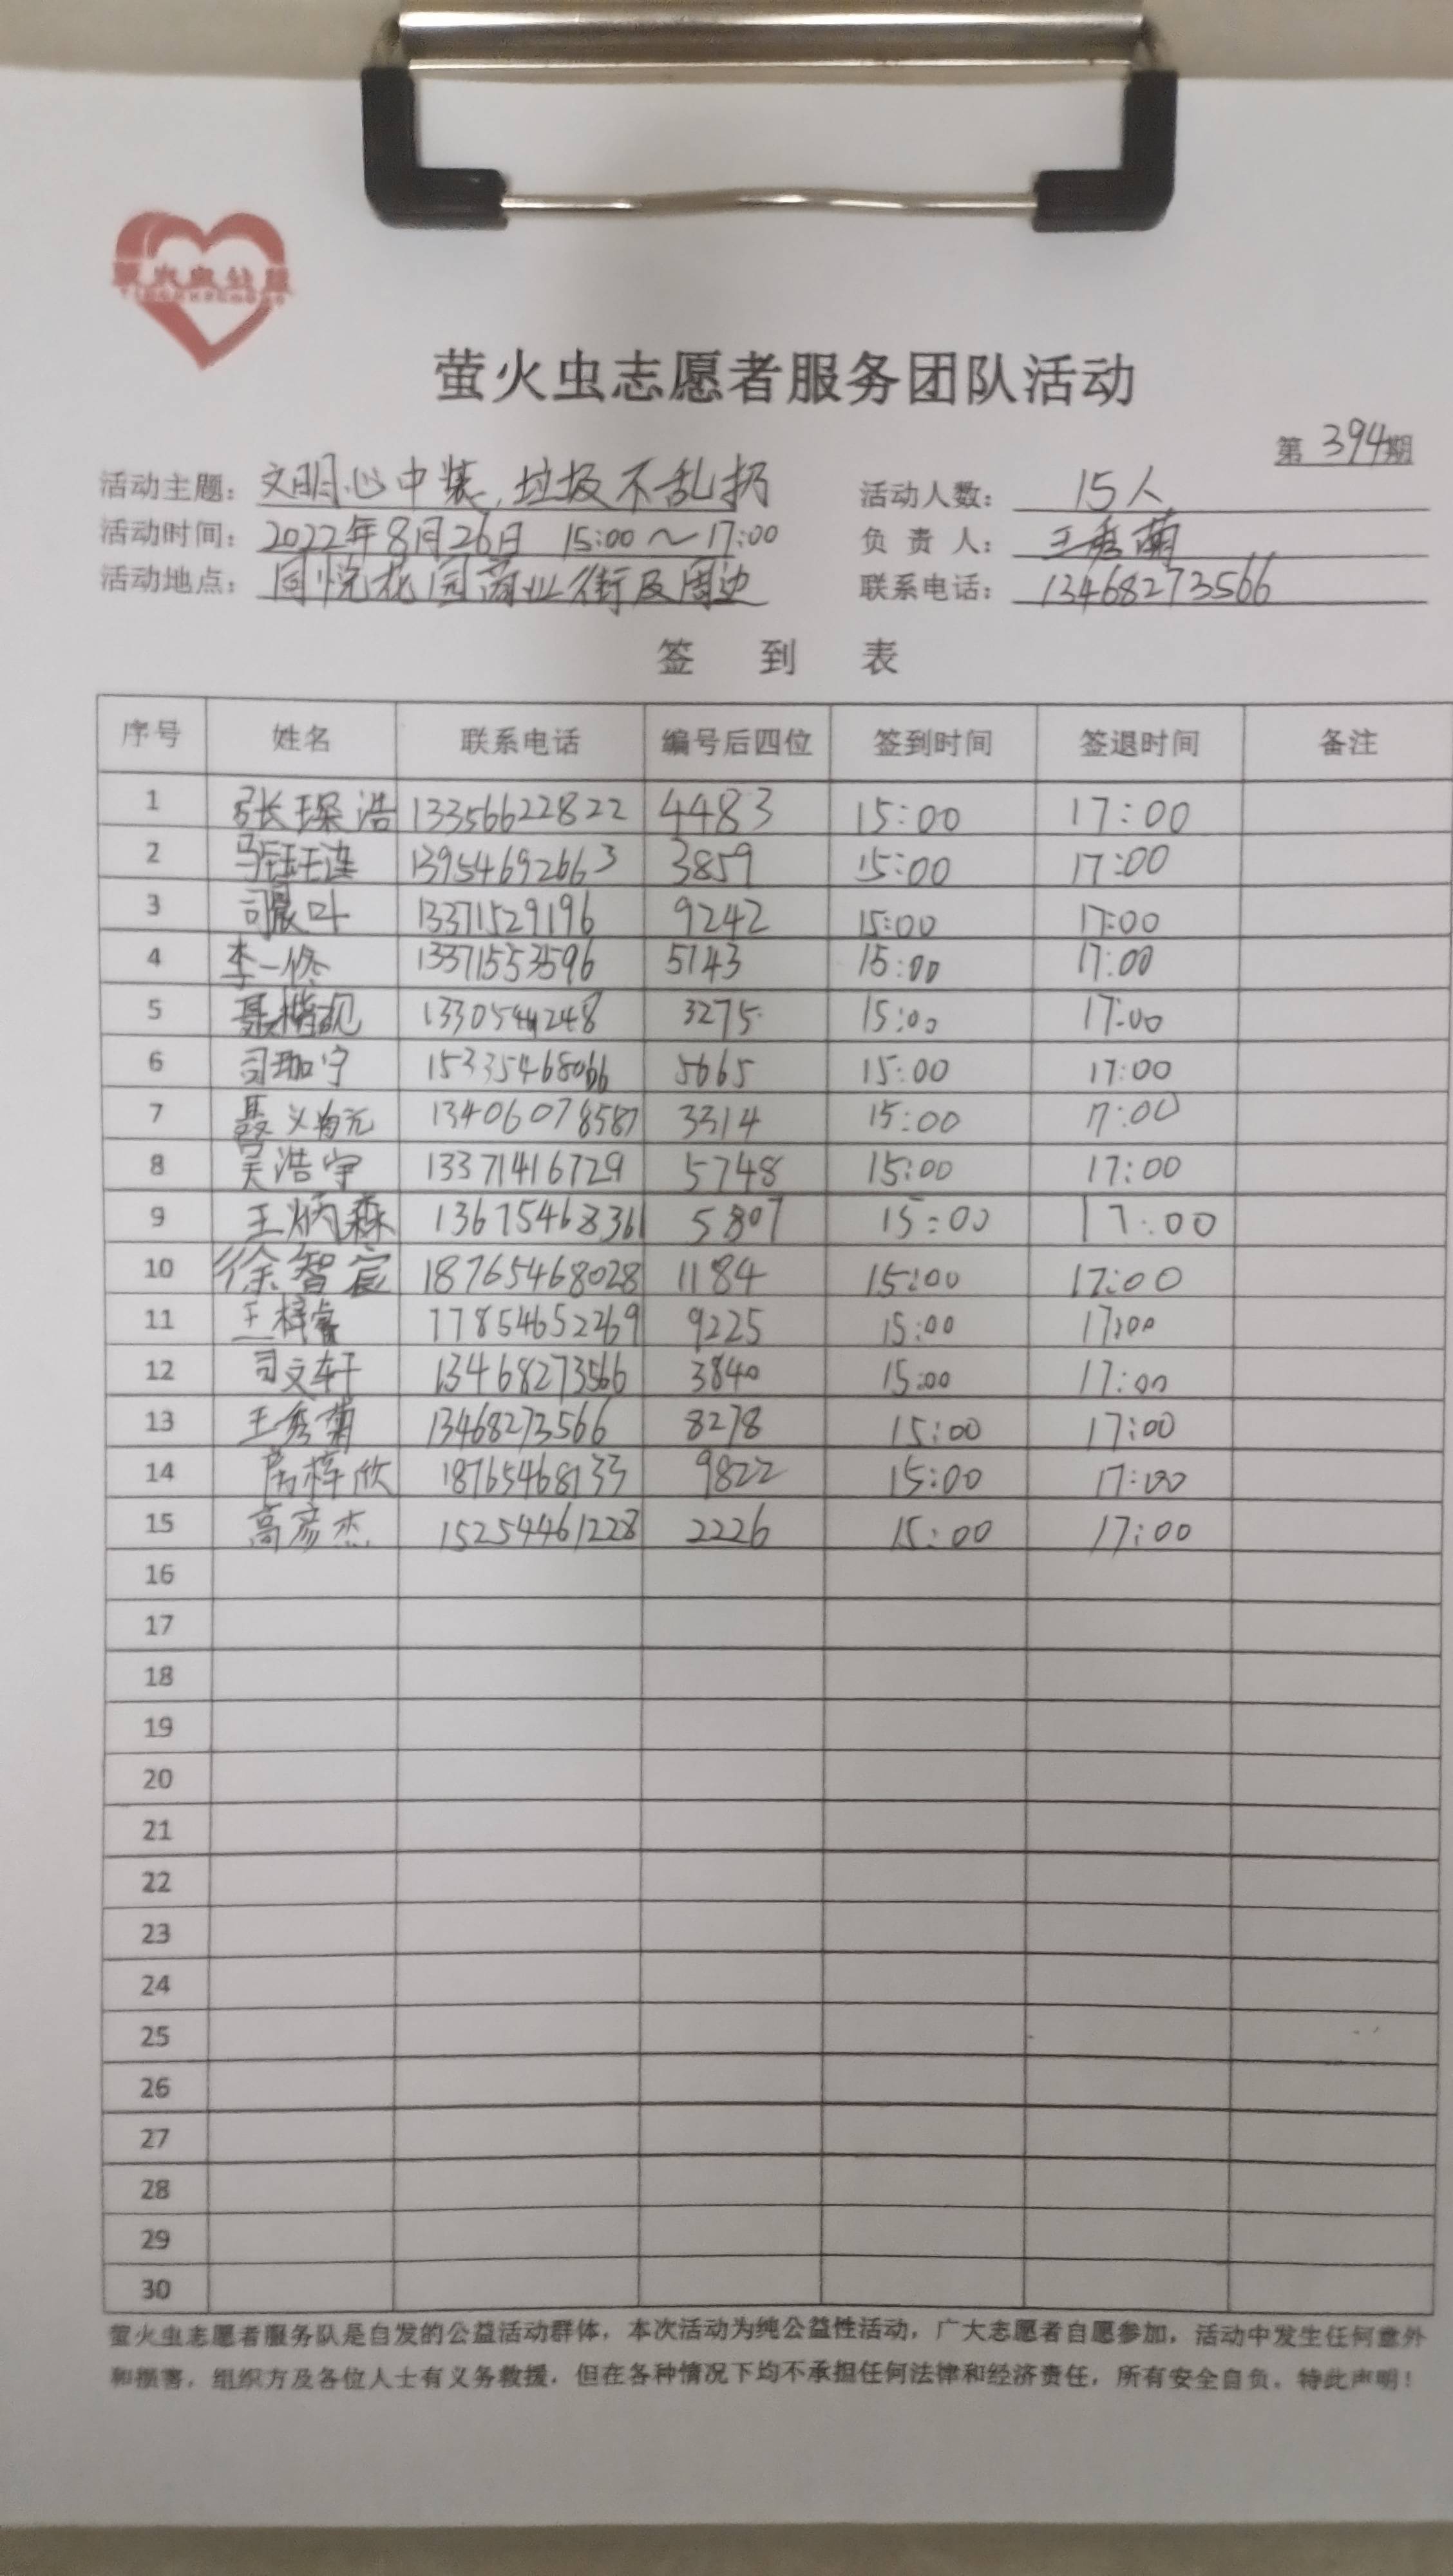 萤火虫志愿者服务团队活动
第 394期
活动主题: 文明心中装,垃圾不乱扔 活动人数: 15人
活动时间: 2022年8月26日 15:00~17:00 负责人: 王秀菊
活动地点: 同悦花园商业街及周边 联系电话: 13468273566
签到表
序号 姓名 联系电话 编号后四位 签到时间 签退时间 备注
1 张璪浩 13356622822 4483 15:00 17:00
2 13954692663 3859 15:00 17:00
3 司晨叶 13371529196 9242 15:00 17:00
4 李一修 13371553596 5143 15:00 17:00
5 3275 15:00 17:00
6 司珈宁 15335468066 5665 15:00 17:00
7 13406078587 3314 15:00 17:00
8 吴浩宇 13371416729 5748 15:00 17:00
9 王炳森 13675468361 5807 15:00 17:00
10 徐智宸 18765468028 1184 15:00 17:00
11 王梓睿 17854652269 9225 15:00 17:00
12 司文轩 13468273566 3840 15:00 17:00
13 王秀菊 13468273566 8278 15:00 17:00
14 房梓欣 18765468133 9822 15:00 17:00
15 高彦杰 15254461228 2226 15:00 17:00
16
17
18
19
20
21
22
23
24
25
26
27
28
29
30
萤火虫志愿者服务队是自发的公益活动群体,本次活动为纯公益性活动,广大志愿者自愿参加,活动中发生任何意外
和损害,组织方及各位人士有义务救援,但在各种情况下均不承担任何法律和经济责任,所有安全自负。特此声明!